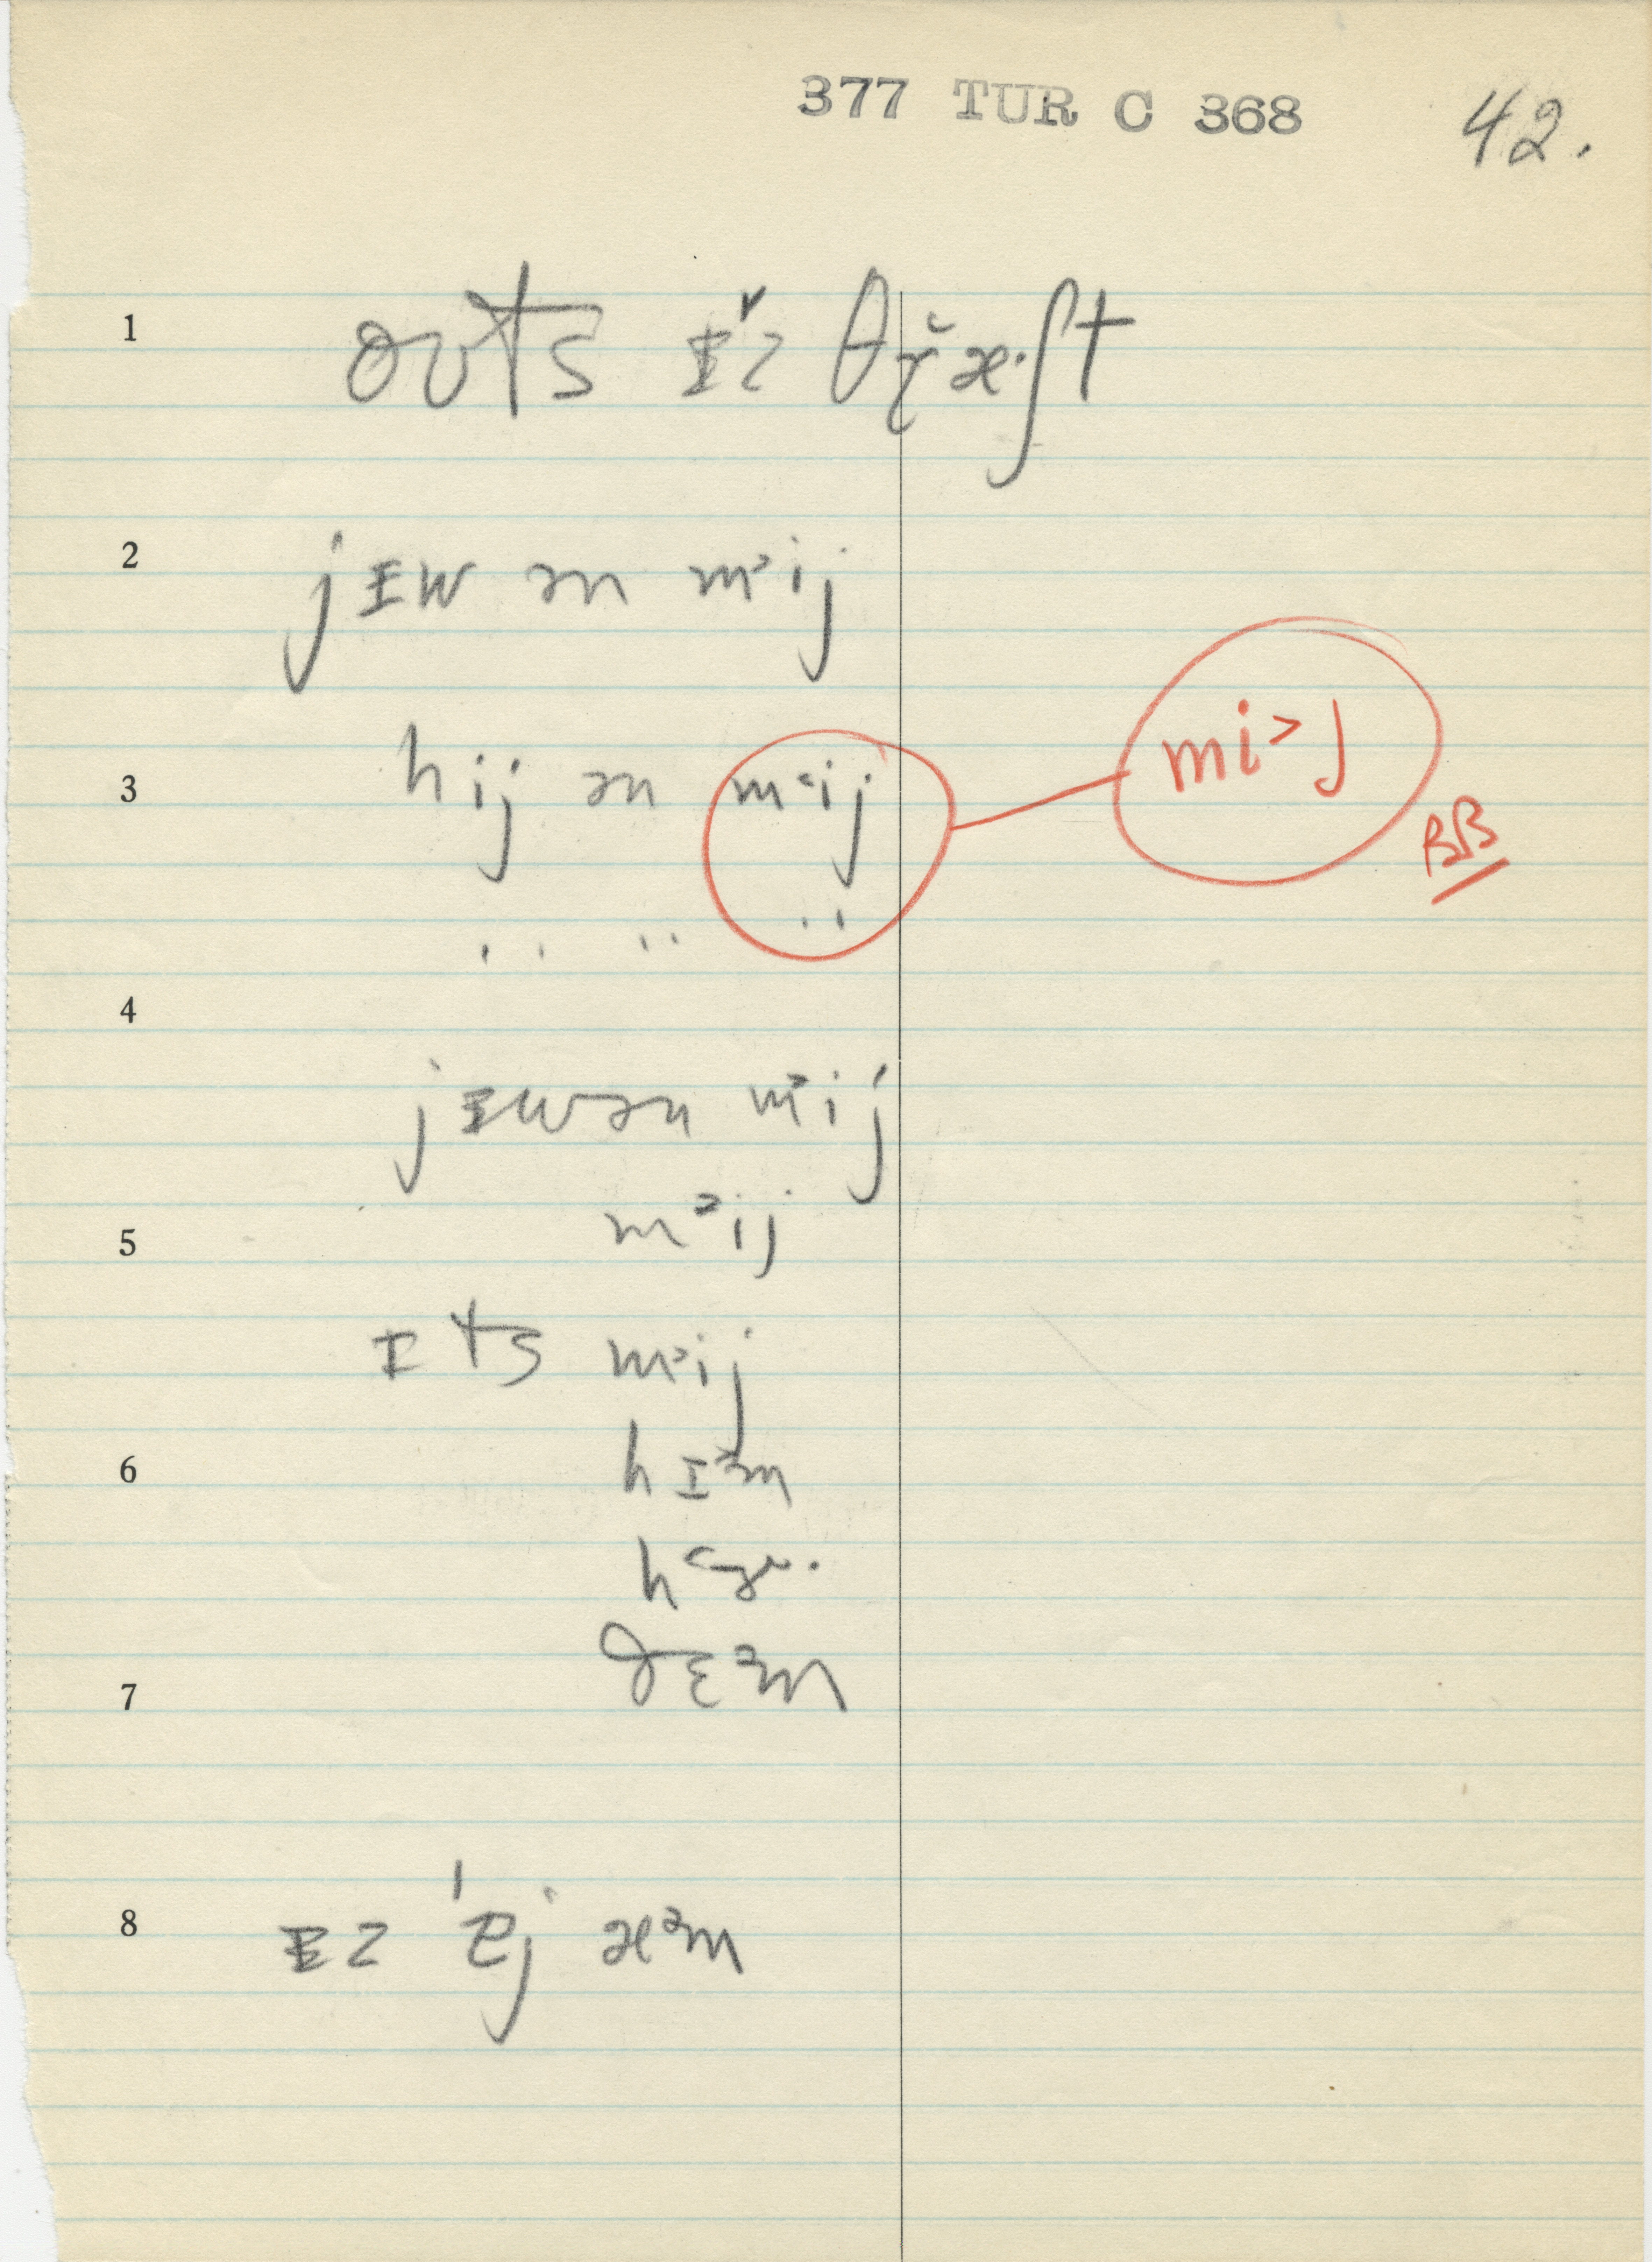 377 TUR C 368 42.
1 oʊts ɪˇz θɽæ·ʃt
2 jɪw ən m˃ij
3 hij ən m˂ij
mi˃j
BB
.. .. ..
4
jɪwən m˃ij
5 m˃ij
ɪts m˃ij
6 hɪ˃m
h˂ɚ·
7 ðɛ˃m
8 ɪz 'ej æ˃m